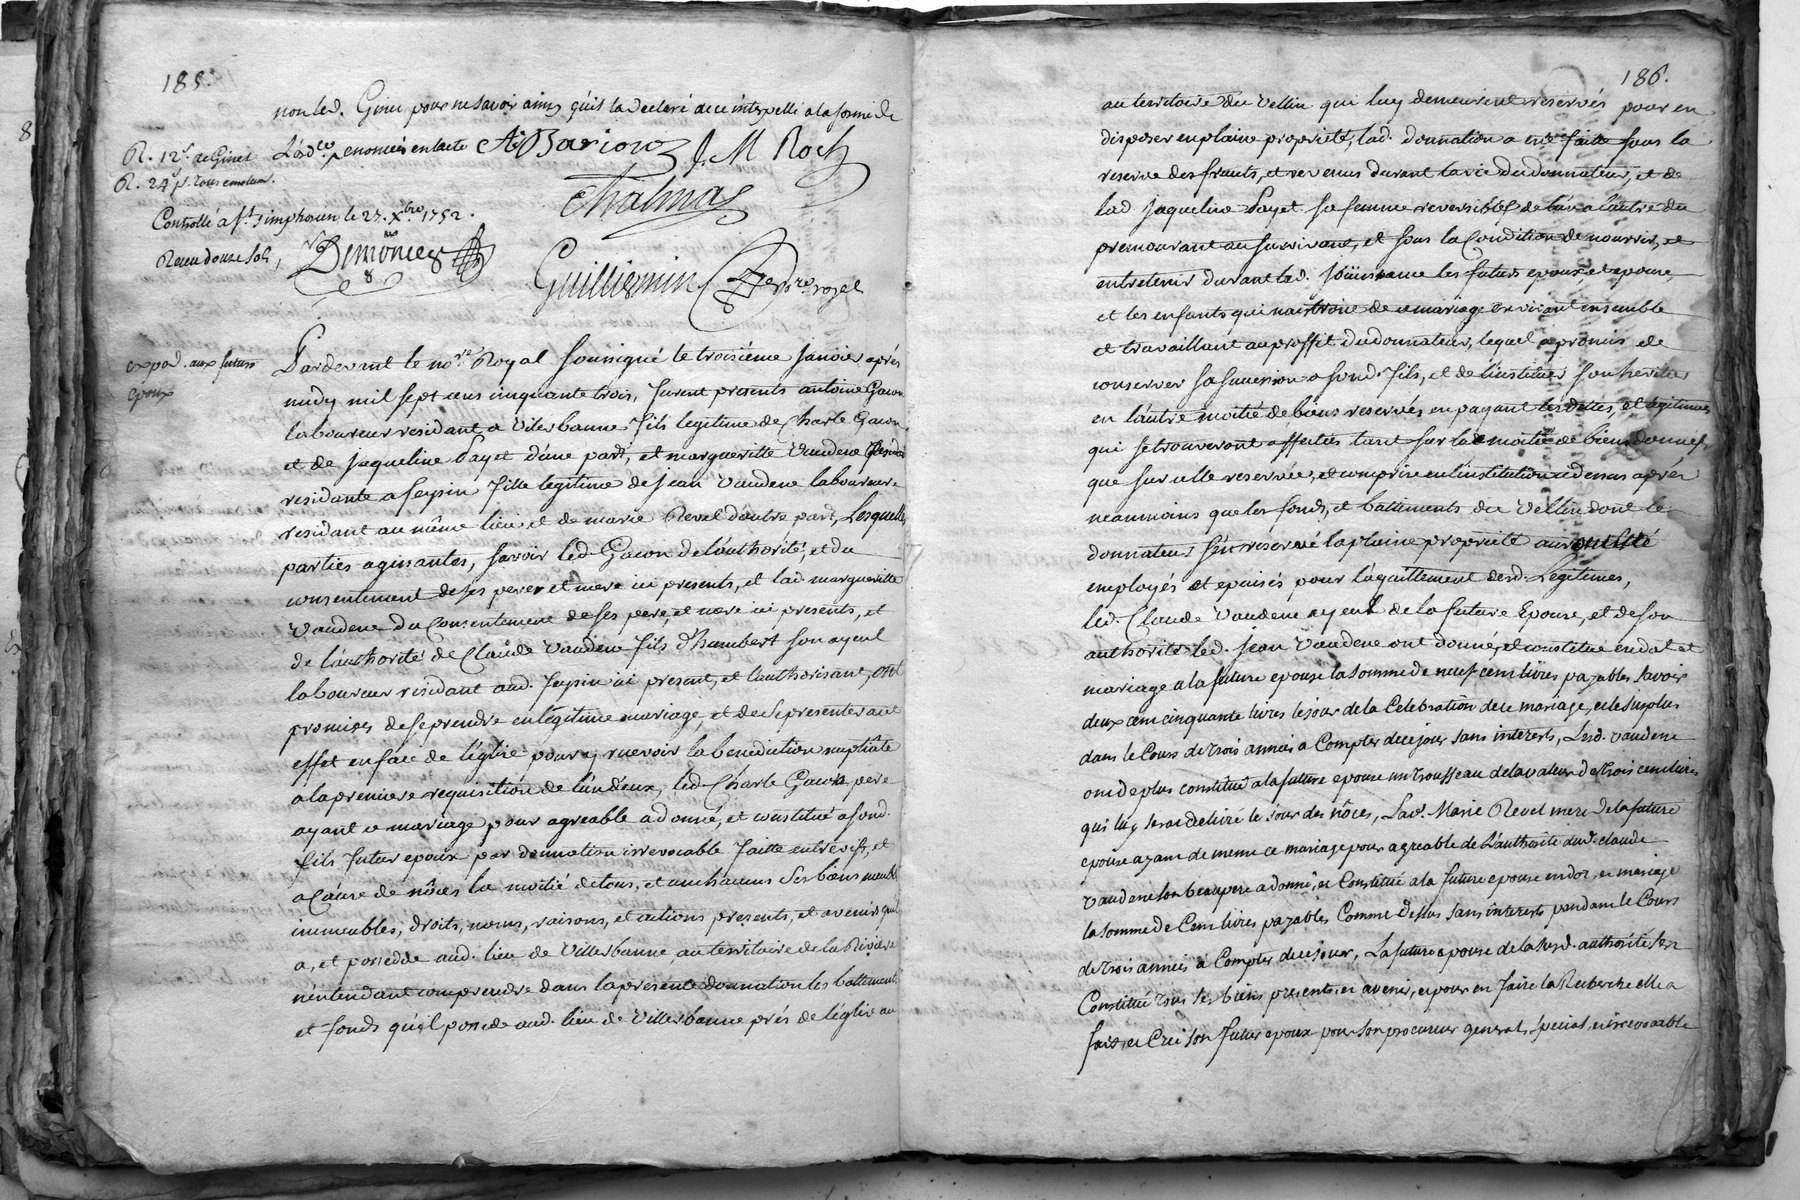 185.
non led. Ginet pour ne savoir ainsy qu'il la declaré de ce interpellé a la forme de
L'ord.ce enoncée en lacte A. Barioz J. M Roch
R. 12s. de Ginet
R. 24s p. tous emolum.
Chalmas
Controllé a St. Simphorien le 27. Xbre 1752.
Receu douze sols,
Guilliermin Nore royal
expéd. aux futurs
epoux
Pardevant le nore Royal soussigné le troisième janvier après
midy mil sept cens cinquante trois, furent presents antoine Gacon
laboureur residant a Vilesbanne fils legitime de Charle Gacon,
et de jaqueline Payet d'une part, et margueritte Vaudene
residante a feysin fille legitime de jean Vaudene laboureur
residant au même lieu, et de marie Revel d'autre part, Lesquelles
parties agissantes, savoir led. Gacon de l'authorité, et du
consentement de ses pere, et mere ici presents, et lad. margueritte
Vaudene du Consentement de ses pere, et mere ici presents, et
de l'authorité de Claude Vaudene fils d'humbert son ayeul
laboureur residant aud. feysin ici present, et l'authorisant, ont
promis de se prendre en légitime mariage, et de se presenter a cet
effet en face de l'église pour y recevoir la benediction nuptiale
a la premiere requisition de l'un d'eux, led. Charle Gacon pere
ayant ce mariage pour agreable a donné, et constitué a sond.
fils futur epoux par donnation irrevocable faitte entrevifs, et
a Cause de nôces la moitié de tous, et un chacuns ses biens meubles
immeubles, droits, noms, raisons, et actions presents, et avenirs qu'il
a, et possedde aud. lieu de Villesbanne, au territoire de la Riviere
n'entendant comprendre dans la presente donnation les battiments
et fonds qu'il possede aud. lieu de Villesbanne près de l'église au
186.
au territoire du Vellin qui luy demeurent reservés pour en
disposer en plaine proprieté, lad. donnation a eté faitte sous la
reserve des fruits, et revenus durant la vie du donnateur, et de
lad jaqueline Payet sa femme reversibles de l'un a l'autre du
premourant au survivant, et sous la Condition de nourrir, et
entretenir durant led. joüissance les futurs epoux, et epouse,
et les enfants qui naistront de ce mariage en vivant ensemble
et travaillant au proffit du donnateur, lequel a promis de
conserver sa succession a sond. fils, et de l'instituer son heritier
en l'autre moitié de biens reservés en payant les dettes, et légitimes
qui se trouveront affectés tant sur la moitié de biens donnés,
que sur celle reservée, et comprise en l'institution cy dessus apres
neanmoins que les fonds, et battiments du Vellin dont le
donnateur s'est reservé la plaine proprieté auront été
employés et epuisés pour l'aquittement desd. Légitimes,
led. Claude Vaudene ayeul de la future Epouse, et de son
authorité led. jean Vaudene ont donné, et constitué en dot et
mariage a la future epouse la somme de neuf cent livres payables savoir
deux cent cinquante livres le jour de la Celebration de ce mariage, et le surplus
dans le Cours de trois années a Compter de ce jour sans interets, Lesd. Vaudene
ont de plus constitué a la future epouse un trousseau de la valeur de trois cent livres
qui luy sera delivré le jour des nôces, Lad. Marie Revel mere de la future
epouse ayant de meme ce mariage pour agreable de L'authorité dud. claude
Vaudene son beaupere a donné, et Constitué a la future epouse en dot, et mariage
la somme de Cent livres payables Comme Dessus sans interets pendant le Cours
de trois années à Compter de ce jour, La future epouse de la susd. authorité s'est
Constitué tous ses biens presents, et avenir, et pour en faire la Recherche elle a
fait, et Créé son futur epoux pour son procureur general, special, et irrevocable